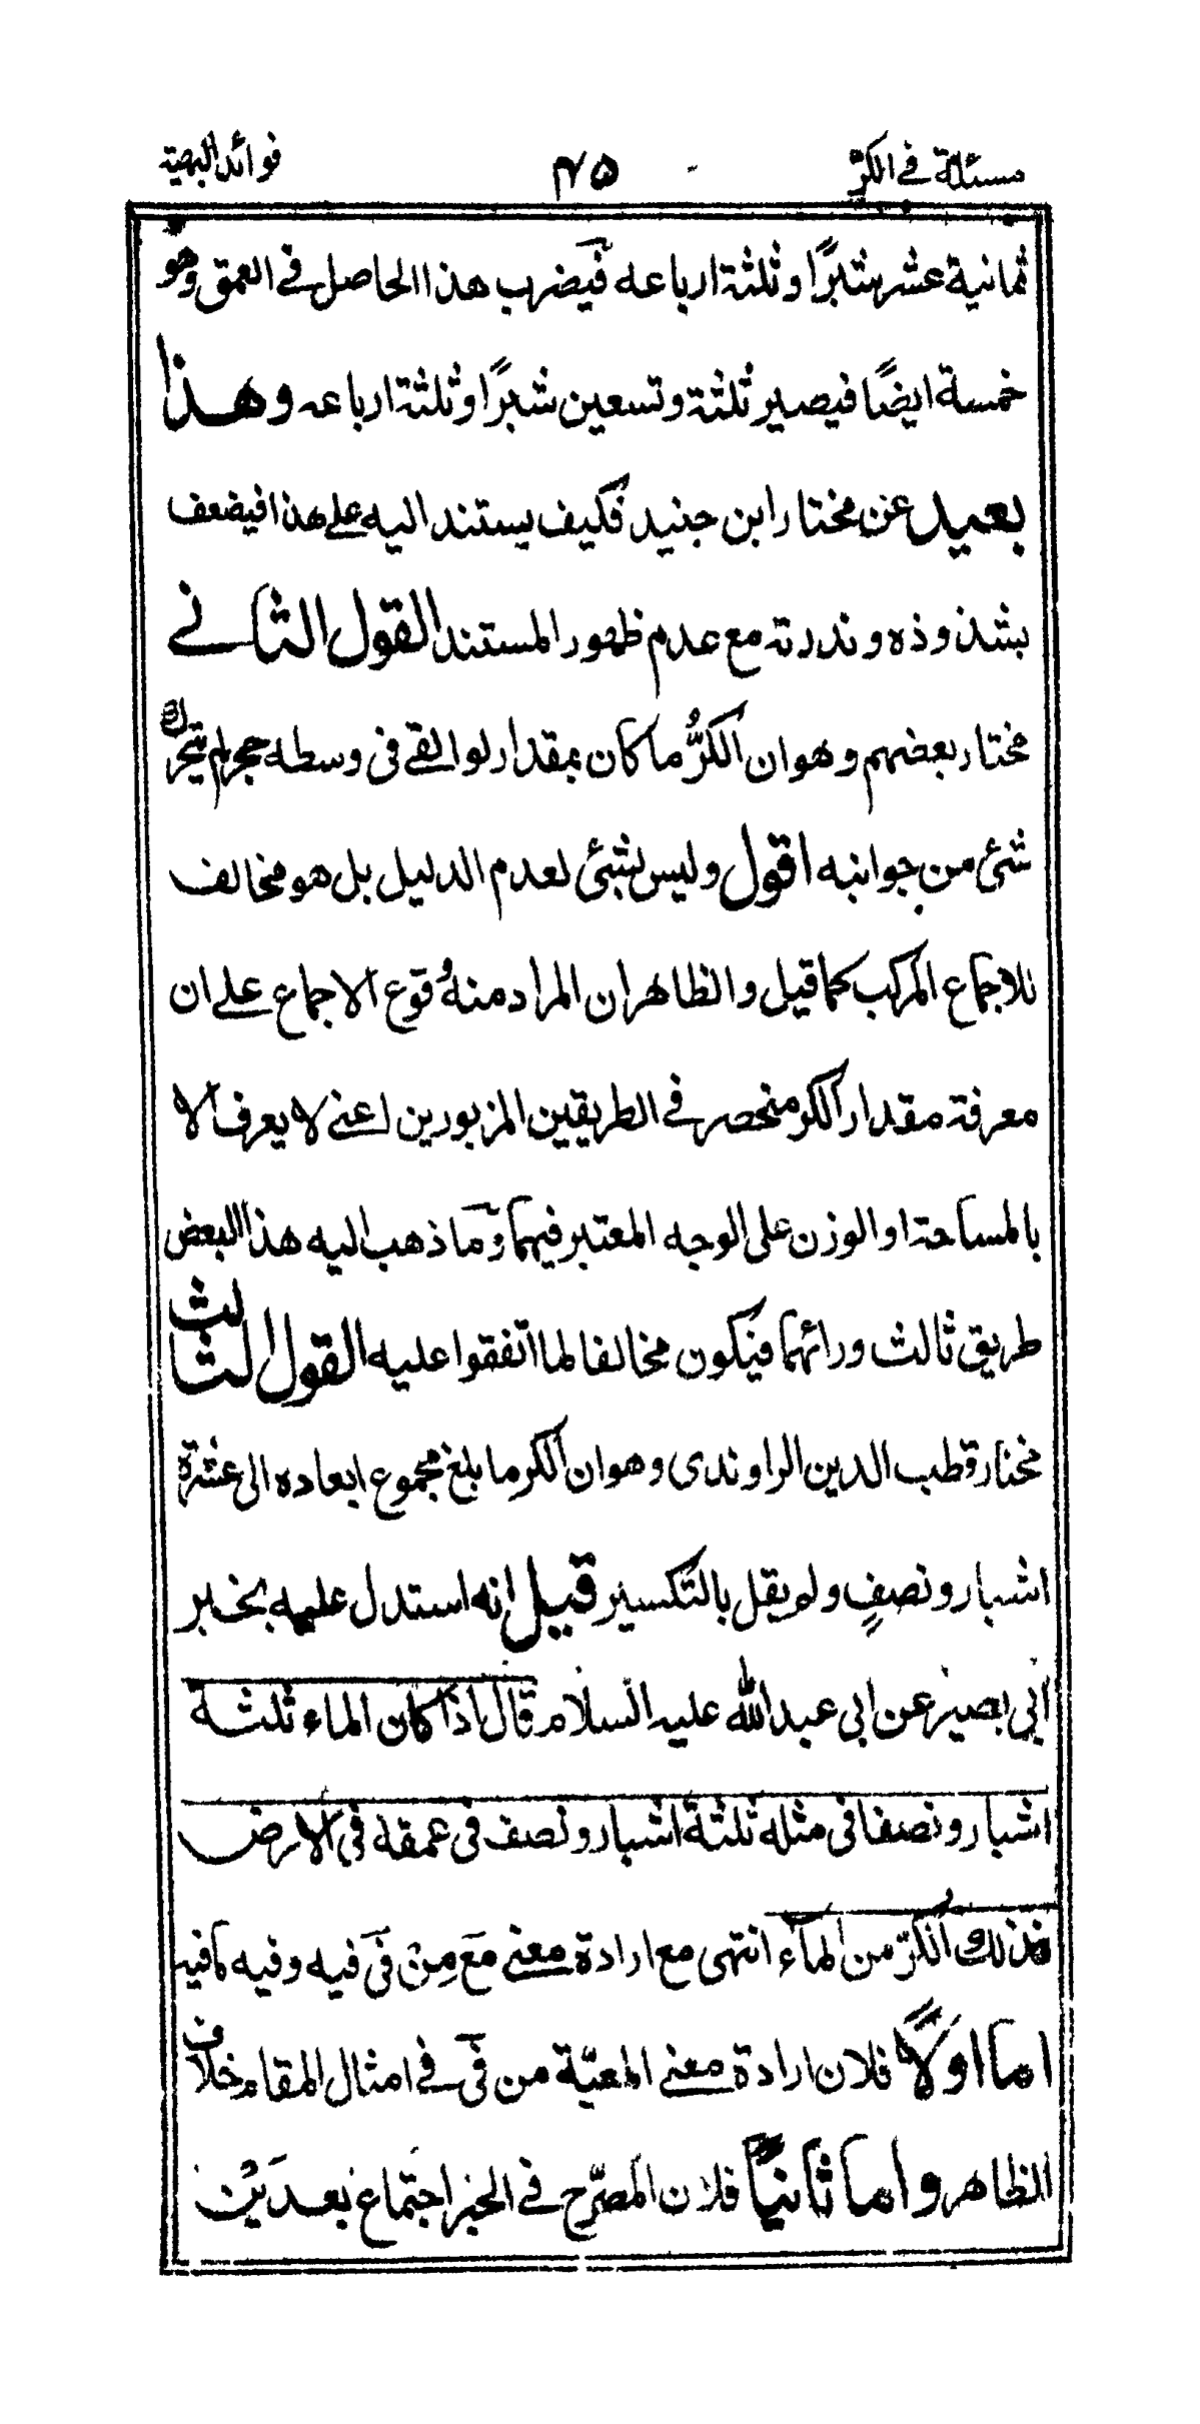 مسئلة في الكرّ ۴۵ فوائد البهية
ثمانية عشر شبرًا وثلثة ارباعه فيضرب هذا الحاصل في العمق وهو
خمسة ايضًا فيصير ثلثة وتسعين شبرًا وثلثة ارباعه وهذا
بعيد عن مختار ابن جنيد فكيف يستند اليه على هذا فيضعف
بشذوذه وندرته مع عدم ظهور المستند القول الثاني
مختار بعضهم وهو ان الكرّ ما كان بمقدار لو القى فى وسطه حجر لم يتحرك
شئ من جوانبه اقول وليس بشئ لعدم الدليل بل هو مخالف
للاجماع المركب كما قيل والظاهر ان المراد منه وقوع الاجماع على ان
معرفة مقدار الكر منحصر في الطريقين المزبورين اعنى لا يعرف الا
بالمساحة او الوزن على الوجه المعتبر فيهما وما ذهب اليه هذا البعض
طريق ثالث ورائهما فيكون مخالفا لما اتفقوا عليه القول الثالث
مختار قطب الدين الراوندى وهو ان الكر ما بلغ مجموع ابعاده الى عشرة
اشبار ونصفٍ ولم يقل بالتكسير قيل انه استدل عليه بخبر
ابي بصير عن ابي عبد الله عليه السلام قال اذا كان الماء ثلثة
اشبار ونصفا فى مثله ثلثة اشبار ونصف فى عمقه في الارض
فذلك الكرّ من الماء انتهى مع ارادة معنى مع مِن فى فيه وفيه ما فيه
اما اولًا فلان ارادة معنى المعيّة من فى في امثال المقام خلاف
الظاهر واما ثانيًا فلان المصرّح في الخبر اجتماع بعدين